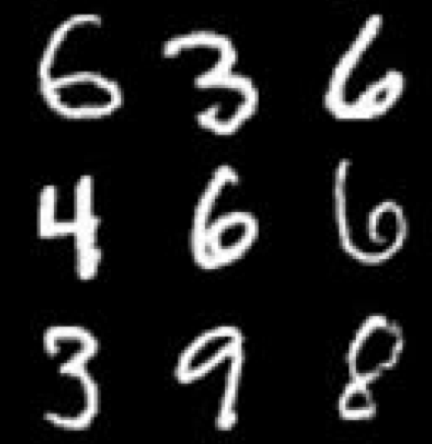 6 3 6
4 6 6
3 9 8